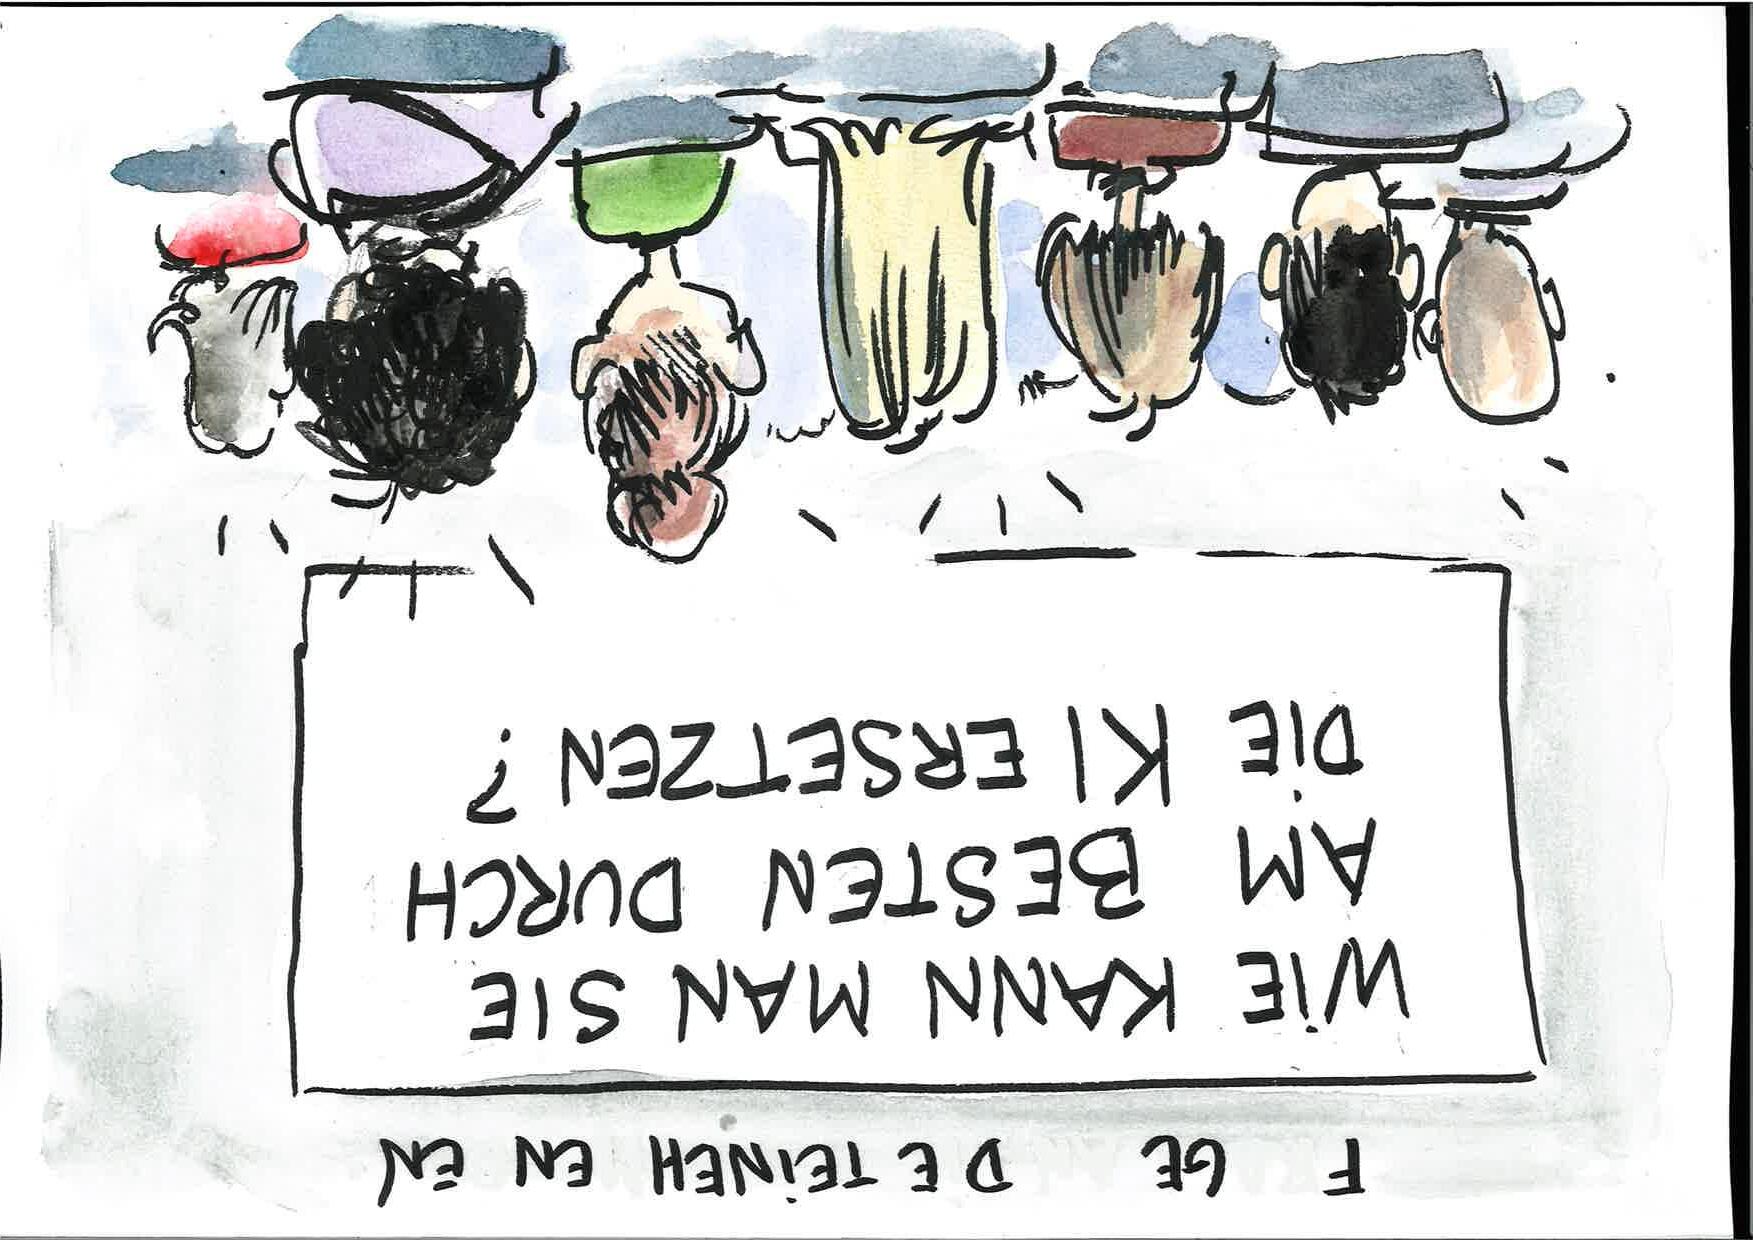 F GE D E TEINEH EN EN
WIE KANN MAN SIE
AM BESTEN DURCH
DIE KI ERSETZEN?